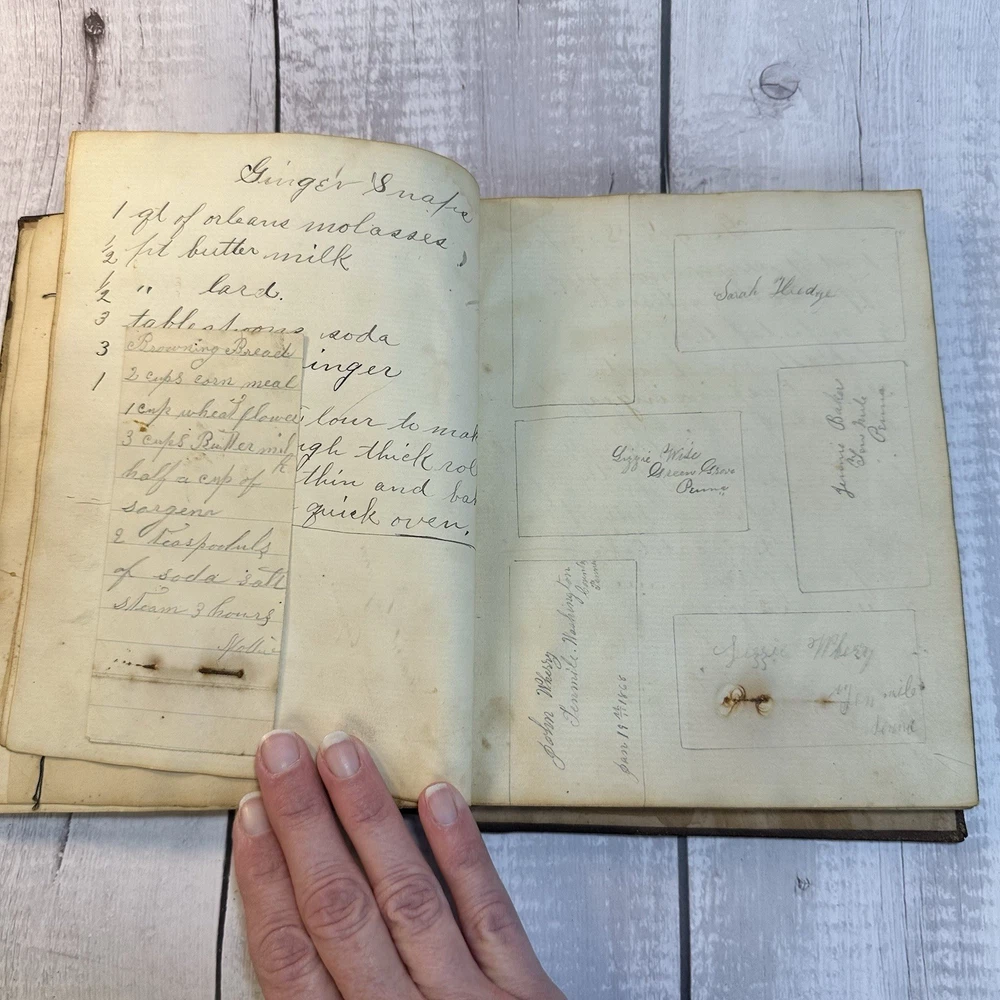 Ginger Snaps
1 qt of orleans molasses
1/2 pt butter milk
1/2 " lard.
3 tablespoons soda
3 inger
1
lour to mak
ugh thick rol
thin and bak
quick oven.
Browning Bread
2 cups corn meal
1 cup wheat flower
3 cups Butter milk
half a cup of
sorgem
2 teaspoofuls
of soda salt
steam 3 hours
Mollie
Sarah Hedge
Lizzie Wise
Green Grove
Penna
Jennie Baker
Penna
John Wherry
Tenmile. Washington
County
Penna
Jan 19th 1866
Lizzie Wherry
Ten mile
Penna